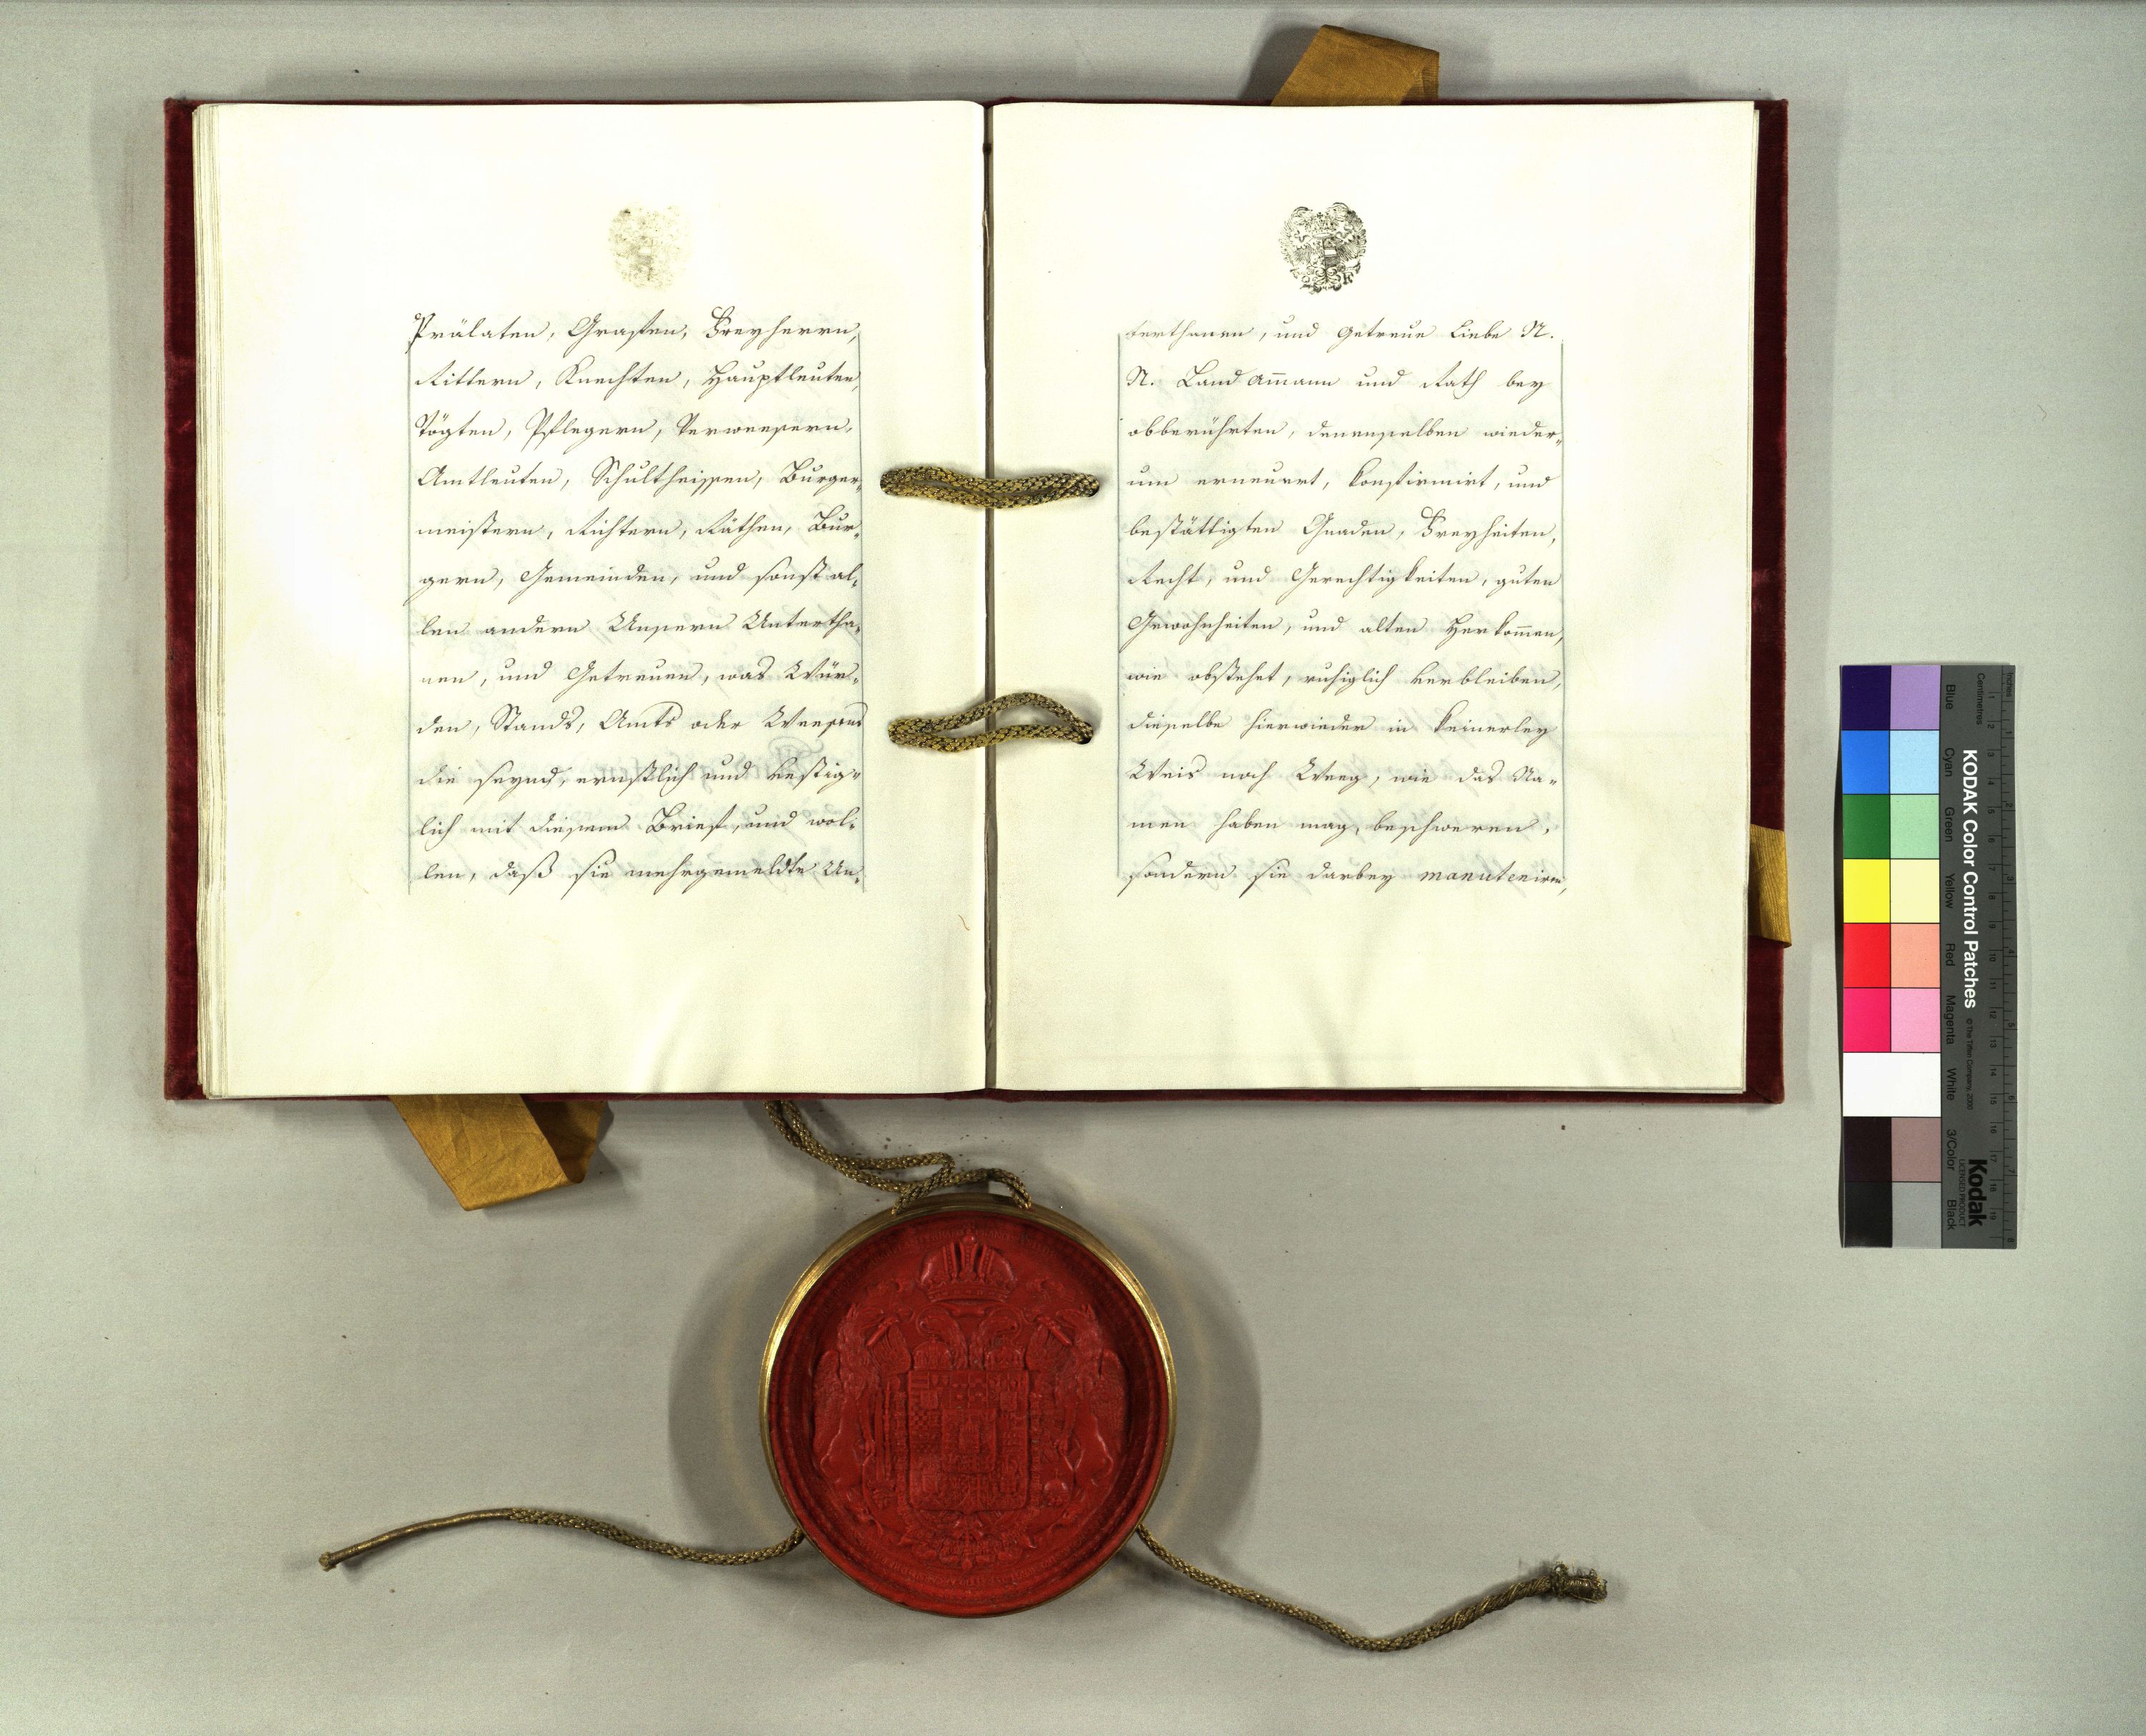 Prälaten, Grafen, Freyherrn,
Rittern, Knechten, Hauptleuten,
Vögten, Pflegern, Verweesern,
Amtleuten, Schultheissen, Burger-
meistern, Richtern, Räthen, Bur-
gern, Gemeinden, und sonst al-
len andern Unsern Untertha-
nen, und Getreuen, was Wür-
den, Stands, Amts oder Weesens
die seynd, ernstlich und vestig-
lich mit diesem Brief, und wol-
len, daß sie mehrgemeldte Un-
terthanen, und getreue Liebe N.
N. Landam̄ann und Rath bey
obberührten, denenselben wieder-
um erneuert, konfirmirt, und
bestättigten Gnaden, Freyheiten,
Recht, und Gerechtigkeiten, guten
Gewohnheiten, und alten Herkom̄en,
wie obstehet, ruhiglich verbleiben,
dieselbe hierwieder in keinerley
Weis noch Weeg, wie das Na-
men haben mag, beschweren,
sondern sie darbey manuteniren,
KODAK Color Control Patches
© The Tiffen Company, 2000
Kodak
LICENSED PRODUCT
Inches
Centimetres
Blue
Cyan
Green
Yellow
Red
Magenta
White
3/Color
Black